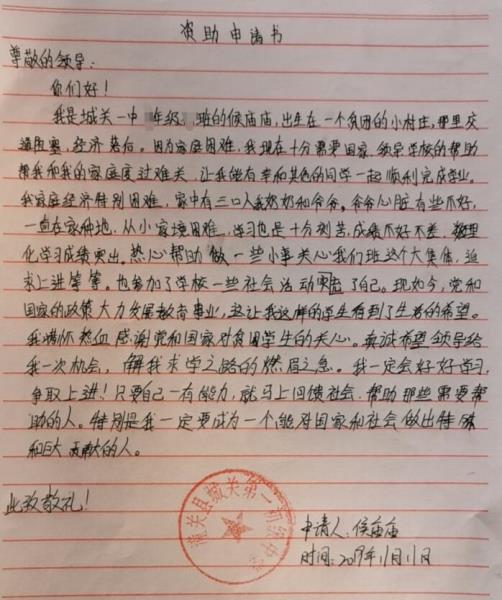 资助申请书
尊敬的领导:
你们好!
我是城关一中 年级 班的候庙庙,出生在一个贫困的小村庄,那里交
通阻塞,经济落后。因为家庭困难,我现在十分需要国家、领导学校的帮助
帮我和我的家庭度过难关,让我能有幸和其他的同学一起顺利完成学业。
我家庭经济特别困难,家中有三口人我奶奶和爷爷。爷爷心脏有些不好,
一直在家种地,从小家境困难,学习也是十分刻苦,成绩不好不差、数理
化学习成绩突出。热心帮助做一些小事关心我们班这个大集体,追
求上进等等。也参加了学校一些社会活动突出了自己。现如今,党和
国家的政策大力发展教育事业,这让我这样的学生看到了生活的希望。
我满怀热血感谢党和国家对贫困学生的关心。真诚希望领导给
我一次机会,解我求学之路的燃眉之急。我一定会好好学习,
争取上进!只要自己一有能力,就马上回馈社会、帮助那些需要帮
助的人。特别是我一定要成为一个能对国家和社会做出特殊
和巨大贡献的人。
此致敬礼!
县城关第一初级中学
申请人:候庙庙
时间:2019年11月11日